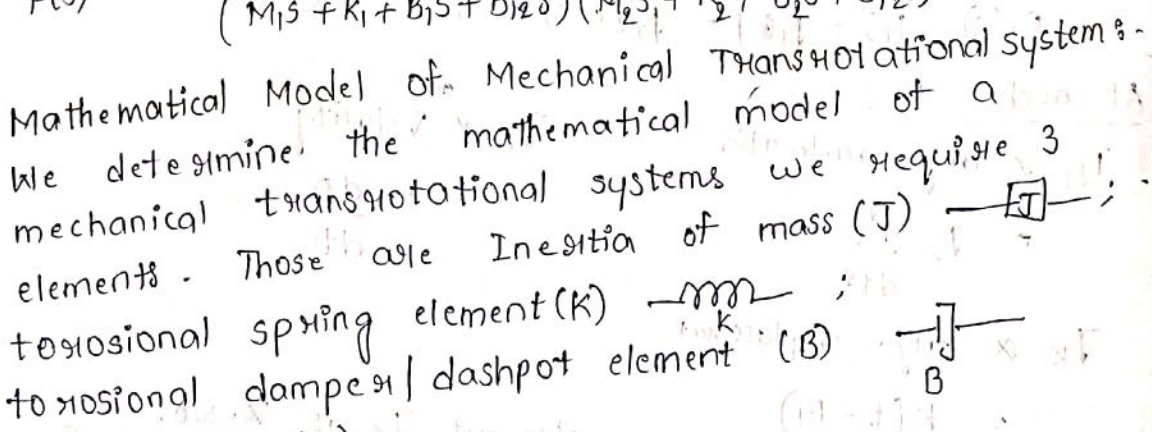 (M₁S + K₁ + B₁S + B₁₂S)(
Mathematical Model of Mechanical Transrotational system :-
We determine the mathematical model of a
mechanical transrotational systems we require 3
elements. Those are Inertia of mass (J) J ;
torosional spring element (K) K ;
torosional damper | dashpot element (B) B